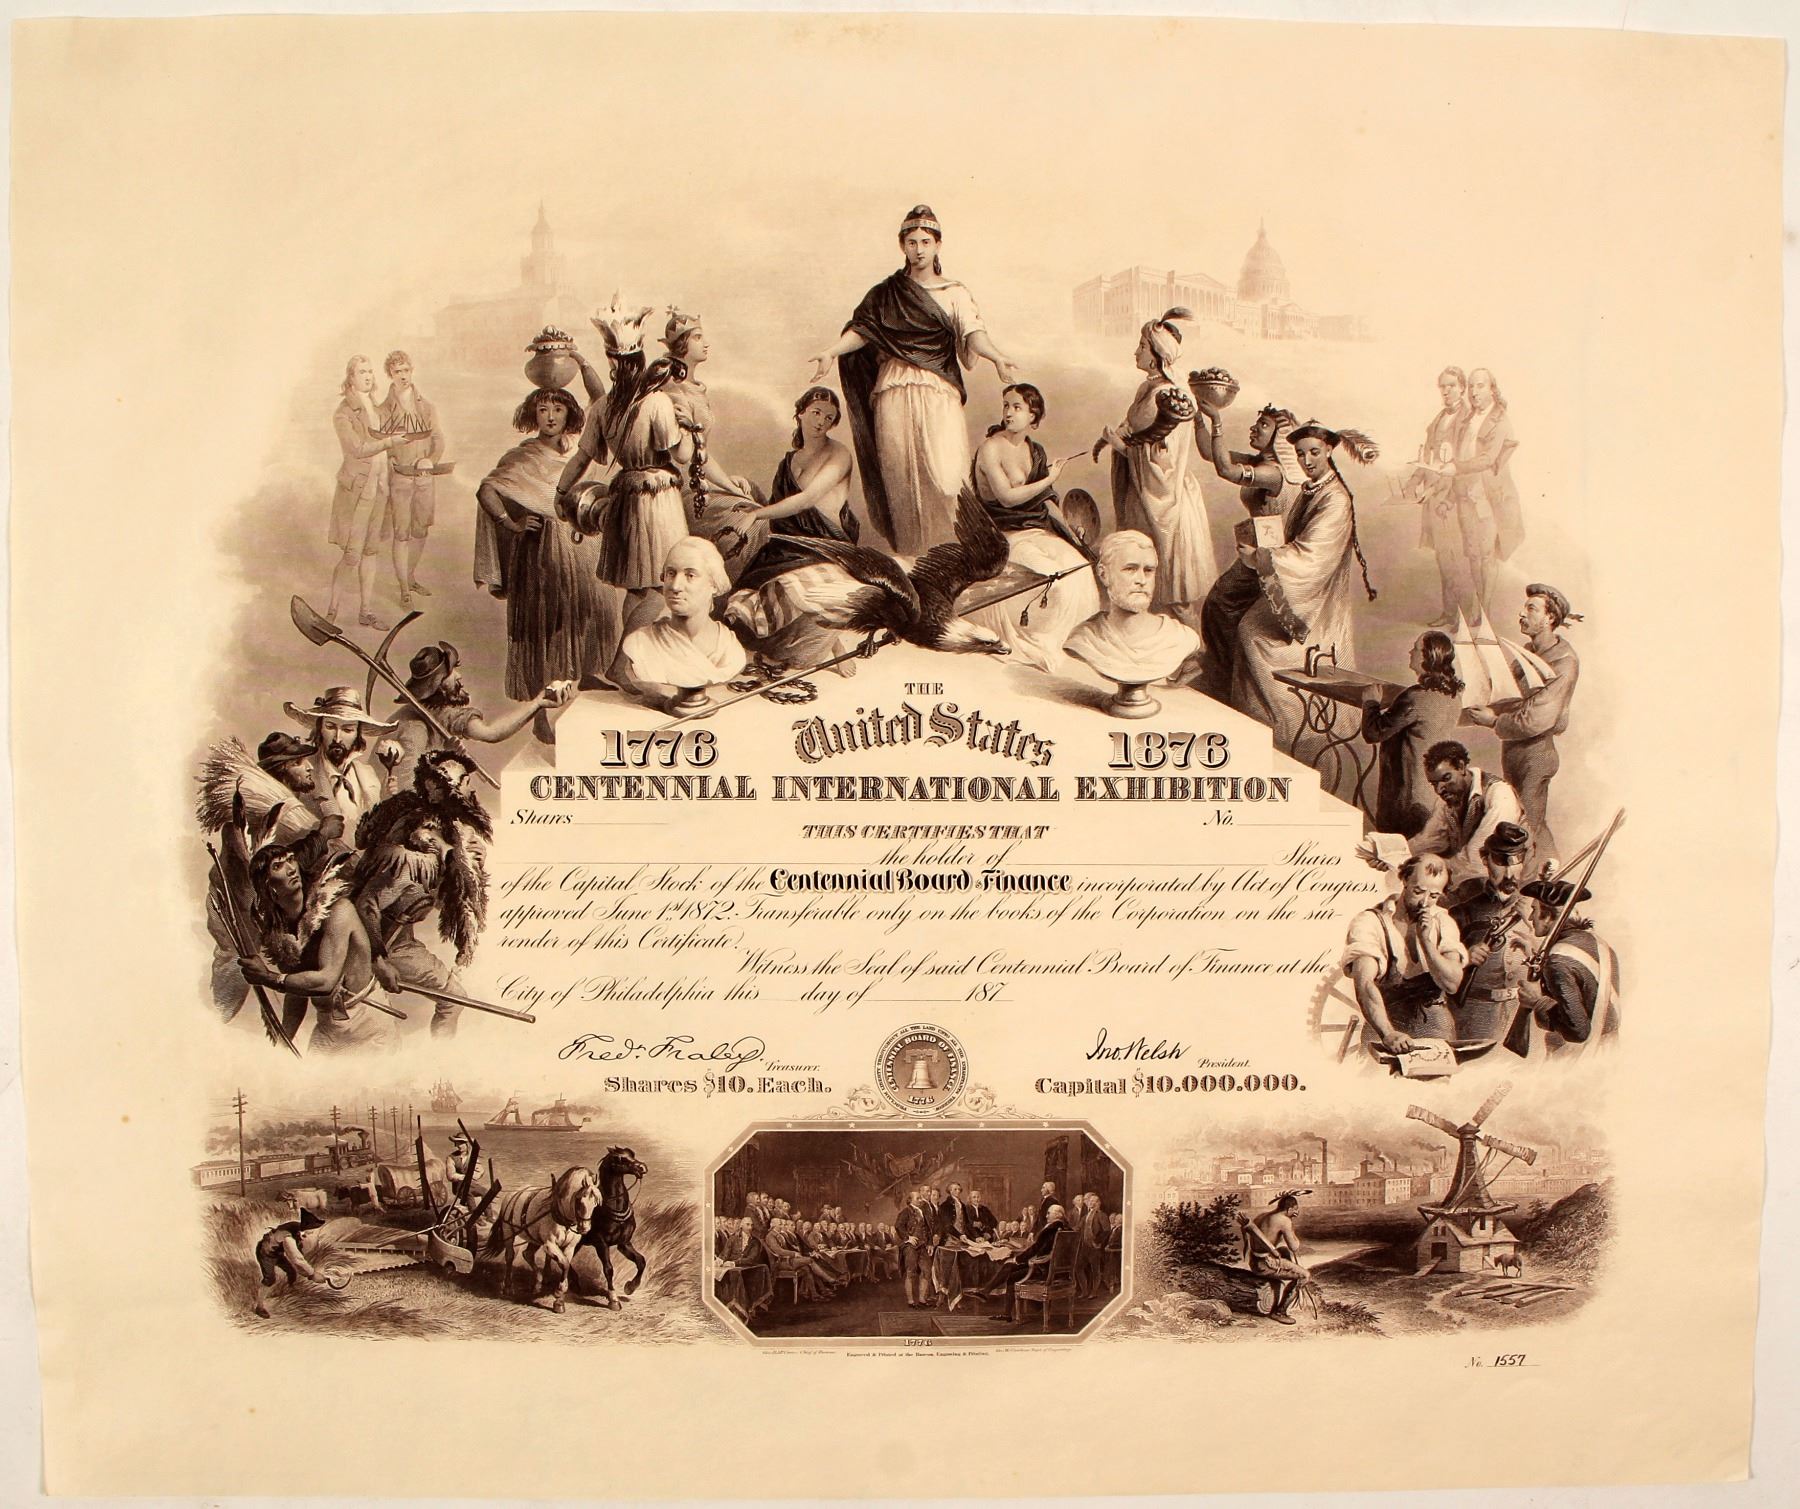 THE
United States
1776 1876
CENTENNIAL INTERNATIONAL EXHIBITION
Shares No.
THIS CERTIFIES THAT
the holder of Shares
of the Capital Stock of the Centennial Board of Finance incorporated by Act of Congress,
approved June 1st 1872. Transferable only on the books of the Corporation on the sur-
render of this Certificate.
Witness the Seal of said Centennial Board of Finance at the
City of Philadelphia this day of 187
Fredk. Fraley. Treasurer. Jno. Welsh President.
Shares $10. Each. Capital $10.000.000.
CENTENNIAL BOARD OF FINANCE
1776
1776
Engraved & Printed at the Bureau, Engraving & Printing.
No. 1557